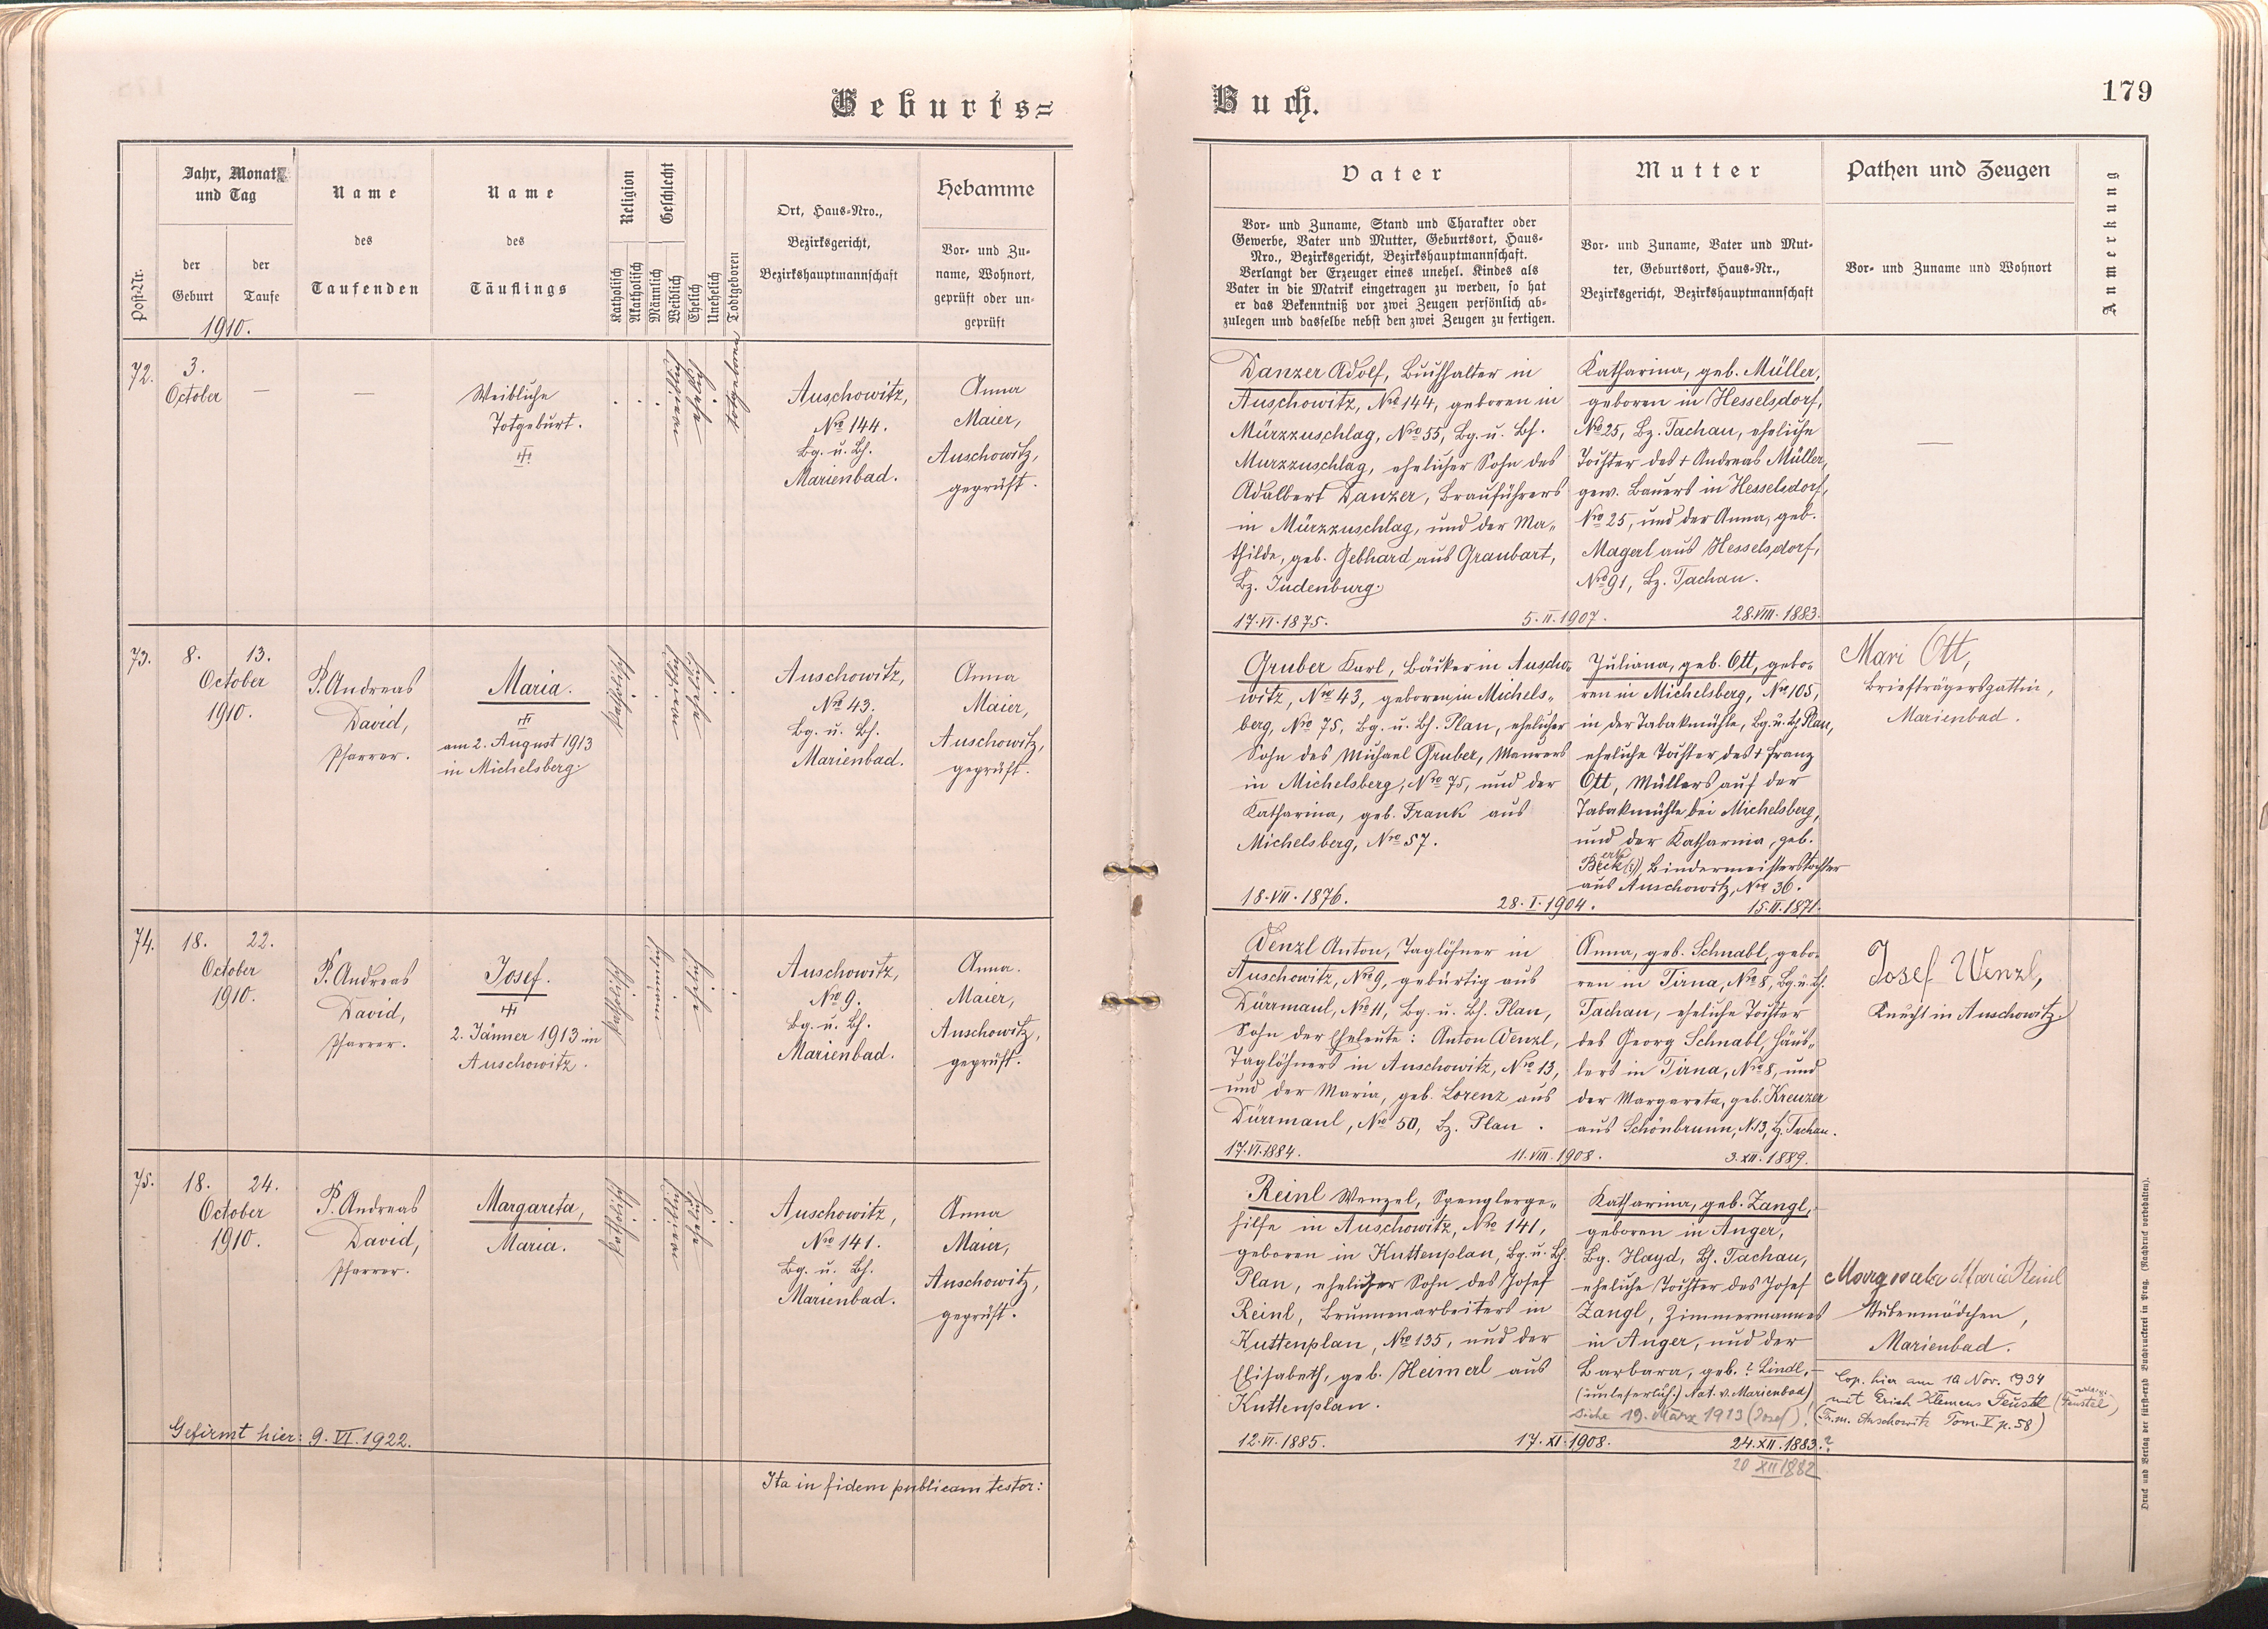 Geburts=
Jahr, Monat
und Tag
der
Geburt
der
Taufe
Post-Nr.
1910.
Name
des
Taufenden
Name
des
Täuflings
Religion
Katholisch
Akatholisch
Geschlecht
Männlich
Weiblich
Ehelich
Unehelich
Todtgeboren
Ort, Haus-Nro.,
Bezirksgericht,
Bezirkshauptmannschaft
Hebamme
Vor- und Zu-
name, Wohnort,
geprüft oder un-
geprüft
72.
3.
October
—
—
Weibliche
Totgeburt.
weiblich
eheliche
totgeboren
Auschowitz,
Nro 144.
Bg. u. Bh.
Marienbad.
Anna
Maier,
Auschowitz,
geprüft.
73.
8.
13.
October
1910.
P. Andreas
David,
Pfarrer.
Maria.
am 2. August 1913
in Michelsberg.
katholisch
Auschowitz,
Nro 43.
Bg. u. Bh.
Marienbad.
Anna
Maier,
Auschowitz,
geprüft.
74.
18.
22.
October
1910.
P. Andreas
David,
Pfarrer.
Josef.
2. Jänner 1913 in
Auschowitz.
katholisch
Auschowitz,
Nro 9.
Bg. u. Bh.
Marienbad.
Anna.
Maier,
Auschowitz,
geprüft.
75.
18.
24.
October
1910.
P. Andreas
David,
Pfarrer.
Margareta,
Maria.
katholisch
Auschowitz,
Nro 141.
Bg. u. Bh.
Marienbad.
Anna
Maier,
Auschowitz,
geprüft.
Gefirmt hier: 9. VI. 1922.
Ita in fidem publicam testor:
Buch.
179
Vater
Vor- und Zuname, Stand und Charakter oder
Gewerbe, Vater und Mutter, Geburtsort, Haus-
Nro., Bezirksgericht, Bezirkshauptmannschaft.
Verlangt der Erzeuger eines unehel. Kindes als
Vater in die Matrik eingetragen zu werden, so hat
er das Bekenntniß vor zwei Zeugen persönlich ab-
zulegen und dasselbe nebst den zwei Zeugen zu fertigen.
Mutter
Vor- und Zuname, Vater und Mut-
ter, Geburtsort, Haus-Nr.,
Bezirksgericht, Bezirkshauptmannschaft
Pathen und Zeugen
Vor- und Zuname und Wohnort
Anmerkung
Danzer Adolf, Buchhalter in
Auschowitz, Nro 144, geboren in
Mürzzuschlag, Nro 55, Bg. u. Bh.
Murzzuschlag, ehelicher Sohn des
Adalbert Danzer, Brauführers
in Mürzzuschlag, und der Ma-
thilde, geb. Gebhard aus Graubart,
Bz. Judenburg.
17. VI. 1875.
5. II. 1907.
Katharina, geb. Müller,
geboren in Hesselsdorf,
No 25, Bz. Tachau, eheliche
Tochter des † Andreas Müller,
gew. Bauers in Hesselsdorf,
Nro 25, und der Anna, geb.
Magerl aus Hesselsdorf,
Nro 91, Bz. Tachau.
28. VIII. 1883.
—
Gruber Karl, Bäcker in Auscho-
witz, Nro 43, geboren in Michels-
berg, Nro 75, Bg. u. Bh. Plan, ehelicher
Sohn des Michael Gruber, Maurers
in Michelsberg, Nro 75, und der
Katharina, geb. Frank aus
Michelsberg, Nro 57.
18. VII. 1876.
28. I. 1904.
Juliana, geb. Ott, gebo-
ren in Michelsberg, Nro 105,
in der Tabakmühle, Bg. u. Bh. Plan,
eheliche Tochter des † Franz
Ott, Müllers auf der
Tabakmühle bei Michelsberg,
und der Katharina, geb.
Beck Bindermeisterstochter
aus Auschowitz, Nro 36.
15. II. 1871.
Mari Ott,
Briefträgersgattin,
Marienbad.
Wenzl Anton, Taglöhner in
Auschowitz, Nro 9, gebürtig aus
Dürrmaul, Nro 11, Bg. u. Bh. Plan,
Sohn der Eheleute: Anton Wenzl,
Taglöhners in Auschowitz, Nro 13,
und der Maria, geb. Lorenz aus
Dürrmaul, Nro 50, Bz. Plan.
17. VI. 1884.
11. VIII. 1908.
Anna, geb. Schnabl, gebo-
ren in Tirna, Nro 8, Bg. u. Bh.
Tachau, eheliche Tochter
des Georg Schnabl, Häus-
lers in Tirna, Nro 8, und
der Margareta, geb. Kreuzer
aus Schönbrunn, N. 13, Bz. Tachau.
3. XII. 1889.
Josef Wenzl,
Knecht in Auschowitz.
Reinl Wenzel, Spenglerge-
hilfe in Auschowitz, Nro 141,
geboren in Kuttenplan, Bg. u. Bh.
Plan, ehelicher Sohn des Josef
Reinl, Brunnenarbeiters in
Kuttenplan, Nro 135, und der
Elisabeth, geb. Heimerl aus
Kuttenplan.
12. VI. 1885.
17. XI. 1908.
Katharina, geb. Zangl,
geboren in Anger,
Bg. Hayd, Bh. Tachau,
eheliche Tochter des Josef
Zangl, Zimmermannes
in Anger, und der
Barbara, geb. ? Lindl,
(unleserlich!) Nat. v. Marienbad)
siehe 19. März 1913 (Josef)!
24. XII. 1883.?
20 XII 1882
Margareta Maria Reinl
Stubenmädchen,
Marienbad.
Cop. hier am 10 Nov. 1934
mit Erich Klemens Feustl (Feustel)
(Tr.m. Auschowitz Tom. V p. 58)
Druck und Verlag der fürst-erzb Buchdruckerei in Prag. (Nachdruck vorbehalten).